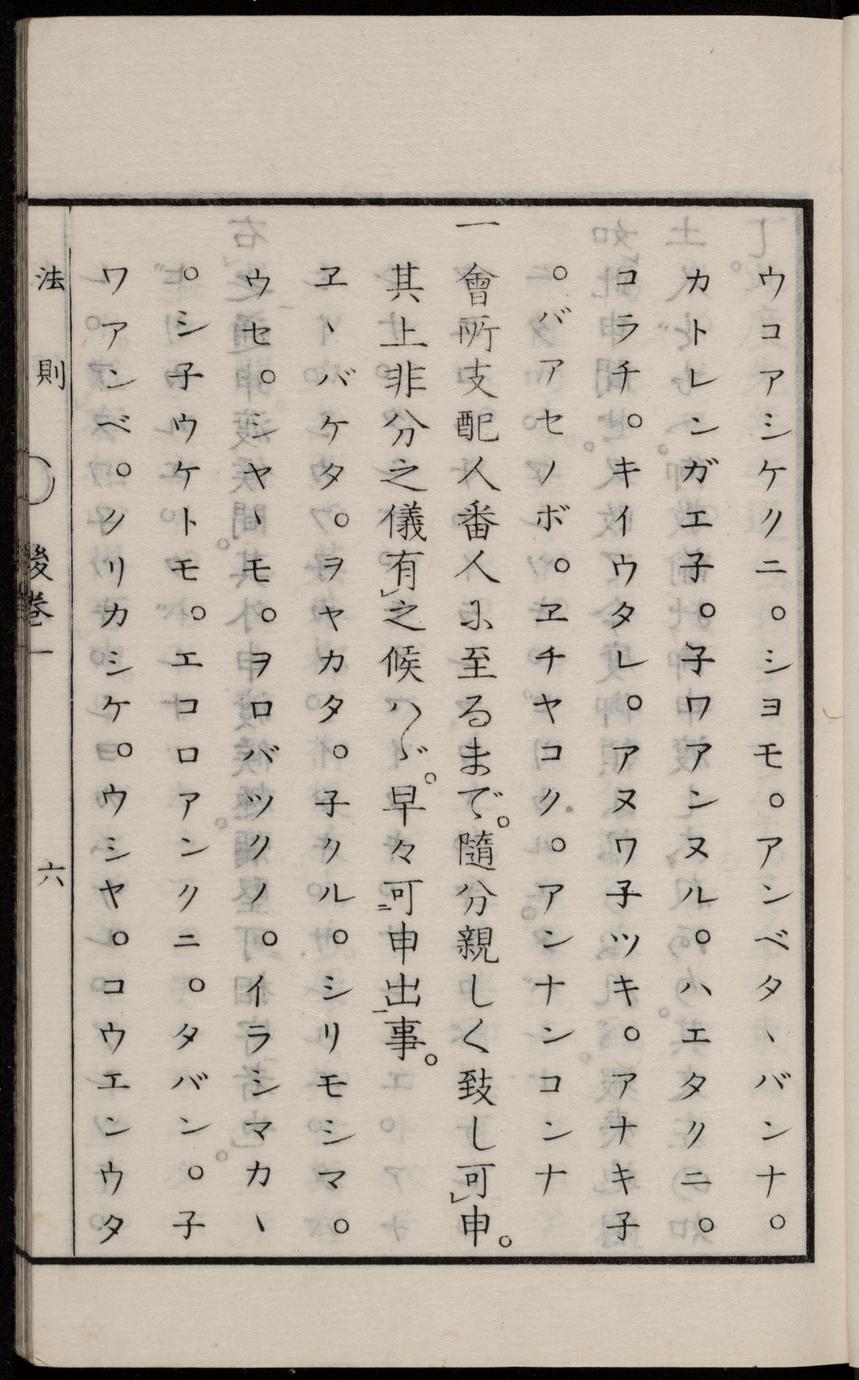 ウコアシケクニ。シヨモ。アンベタヽバンナ。
カトレンガエ子。子ワアンヌル。ハエタクニ。
コラチ。キイウタレ。アヌワ子ツキ。アナキ子
。バアセノボ。ヱチヤコク。アンナンコンナ
一會所支配人番人ニ至るまで。隨分親しく致し可申。
其上非分之儀有之候ハヾ。早々可申出事。
ヱヽバケタ。ヲヤカタ。子クル。シリモシマ。
ウセ。シヤヽモ。ヲロバツクノ。イラシマカヽ
。シ子ウケトモ。エコロアンクニ。タバン。子
ワアンベ。クリカシケ。ウシヤ。コウエンウタ
法則 後巻一 六